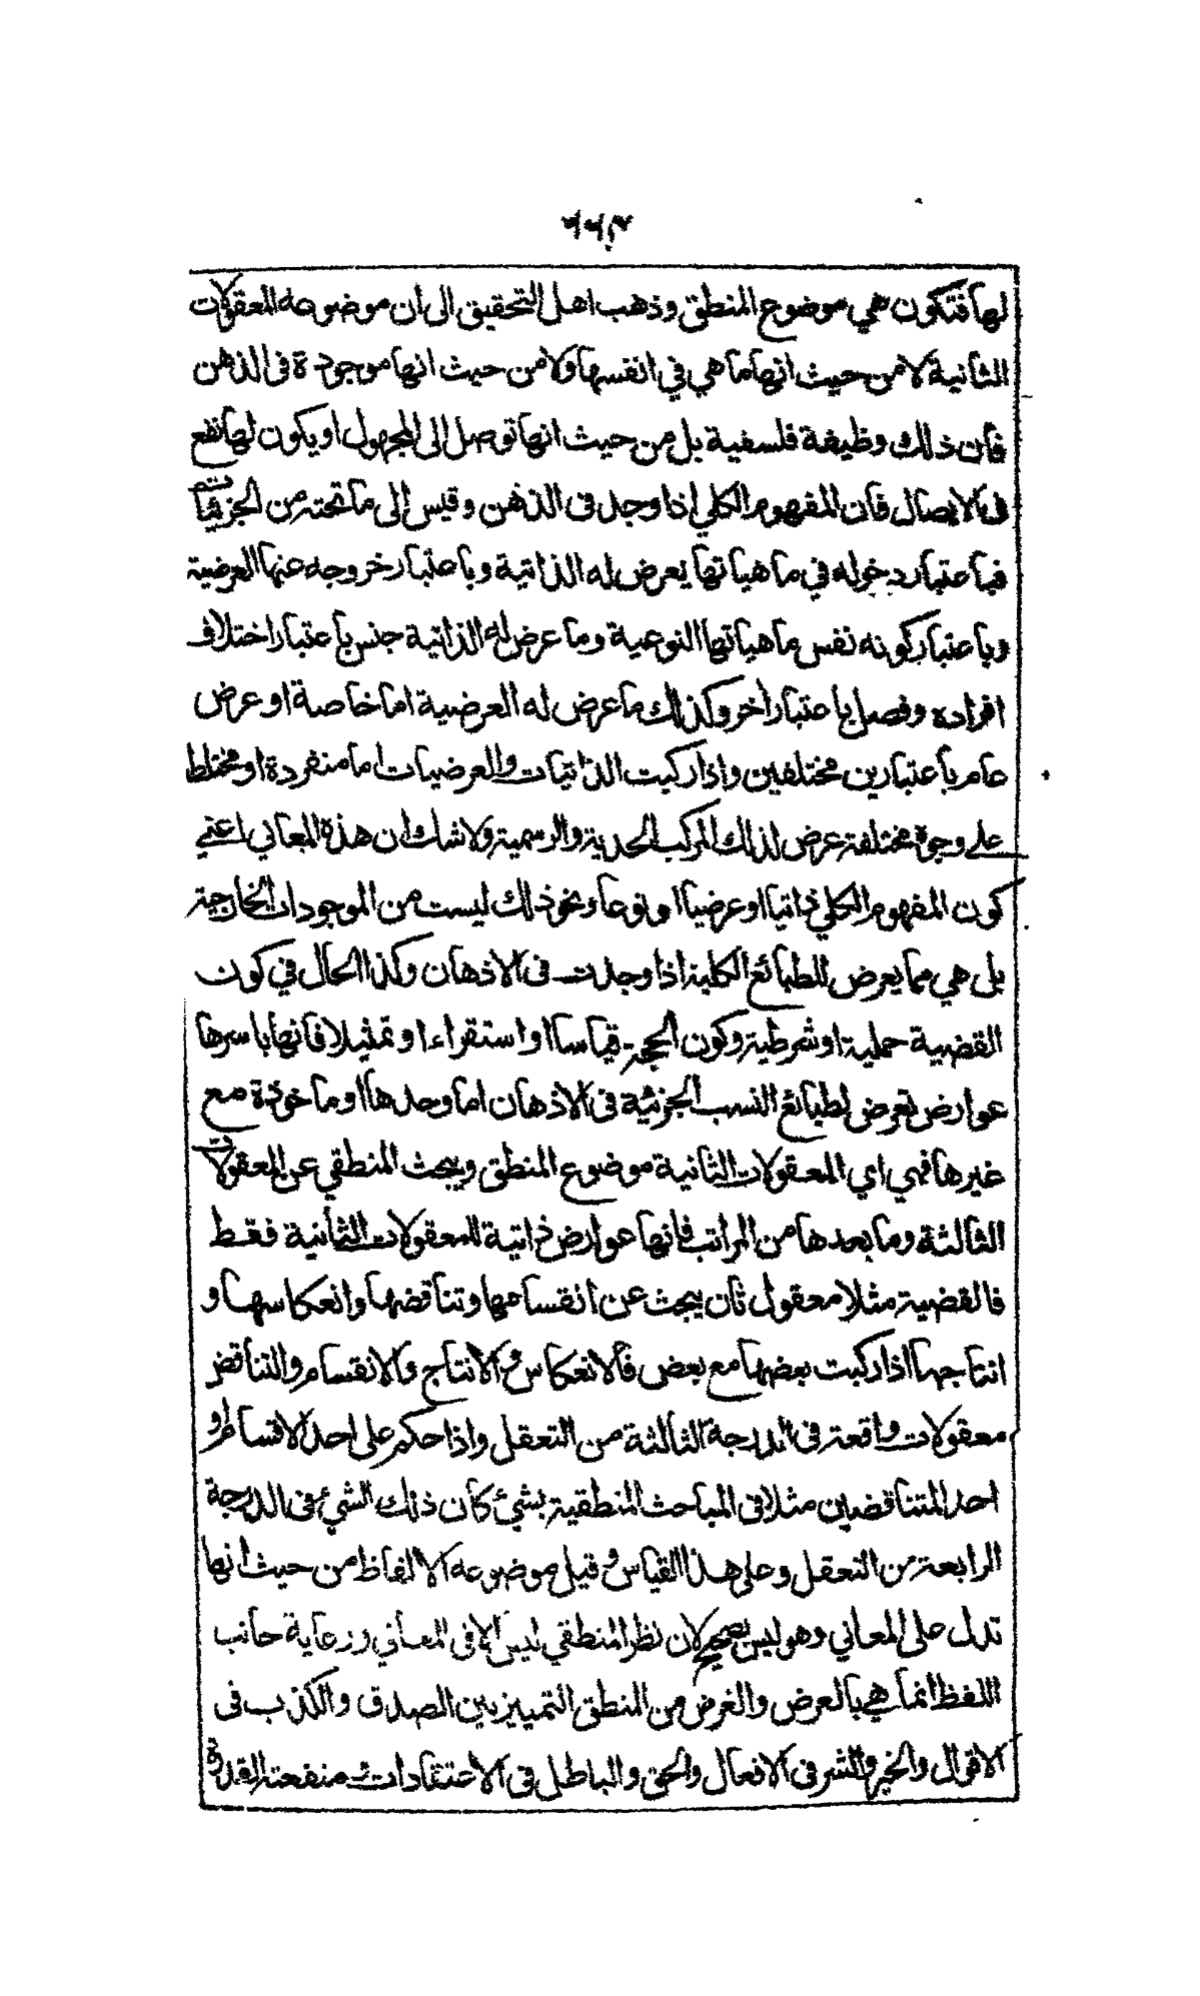 لها فتكون هي موضوع المنطق وذهب اهل التحقيق الى ان موضوعه المعقولات
الثانية لا من حيث انها ما هي في انفسها ولا من حيث انها موجودة في الذهن
فان ذلك وظيفة فلسفية بل من حيث انها توصل الى المجهول او يكون لها نفع
في الايصال فان المفهوم الكلي اذا وجد في الذهن وقيس الى ما تحته من الجزئيات
فباعتبار دخوله في ماهياتها يعرض له الذاتية وباعتبار خروجه عنها العرضية
وباعتبار كونه نفس ماهياتها النوعية وما عرض له الذاتية جنس باعتبار اختلاف
افراده وفصل باعتبار اخر وكذلك ما عرض له العرضية اما خاصة او عرض
عام باعتبارين مختلفين واذا ركبت الذاتيات والعرضيات اما منفردة او مختلطا
على وجوة مختلفة عرض لذلك المركب الحدية والرسمية ولا شك ان هذة المعاني اعني
كون المفهوم الكلي ذاتيا او عرضيا او نوعا ونحو ذلك ليست من الموجودات الخارجية
بل هي مما يعرض للطبائع الكلية اذا وجدت في الاذهان وكذا الحال في كون
القضية حملية او شرطية وكون الحجة قياسا او استقراءا و تمثيلا فانها باسرها
عوارض تعرض لطبائع النسب الجزئية في الاذهان اما وحدها او ماخوذة مع
غيرها فهي اي المعقولات الثانية موضوع المنطق ويبحث المنطقي عن المعقولات
الثالثة وما بعدها من المراتب فانها عوارض ذاتية للمعقولات الثانية فقط
فالقضية مثلا معقول ثان يبحث عن انقسامها وتناقضها وانعكاسها و
انتاجها اذا ركبت بعضها مع بعض فالانعكاس والانتاج والانقسام والتناقض
معقولات واقعة في الدرجة الثالثة من التعقل واذا حكم على احد الاقسام او
احد المتناقضين مثلا في المباحث المنطقية بشيئ كان ذلك الشيئ في الدرجة
الرابعة من التعقل وعلى هذا القياس وقيل موضوعه الالفاظ من حيث انها
تدل على المعاني وهو ليس بصحيح لان نظر المنطقي ليس الا في المعاني ورعاية جانب
اللفظ انما هي بالعرض والغرض من المنطق التمييز بين الصدق والكذب في
الاقوال والخير والشر في الافعال والحق والباطل في الاعتقادات منفعته القدرة